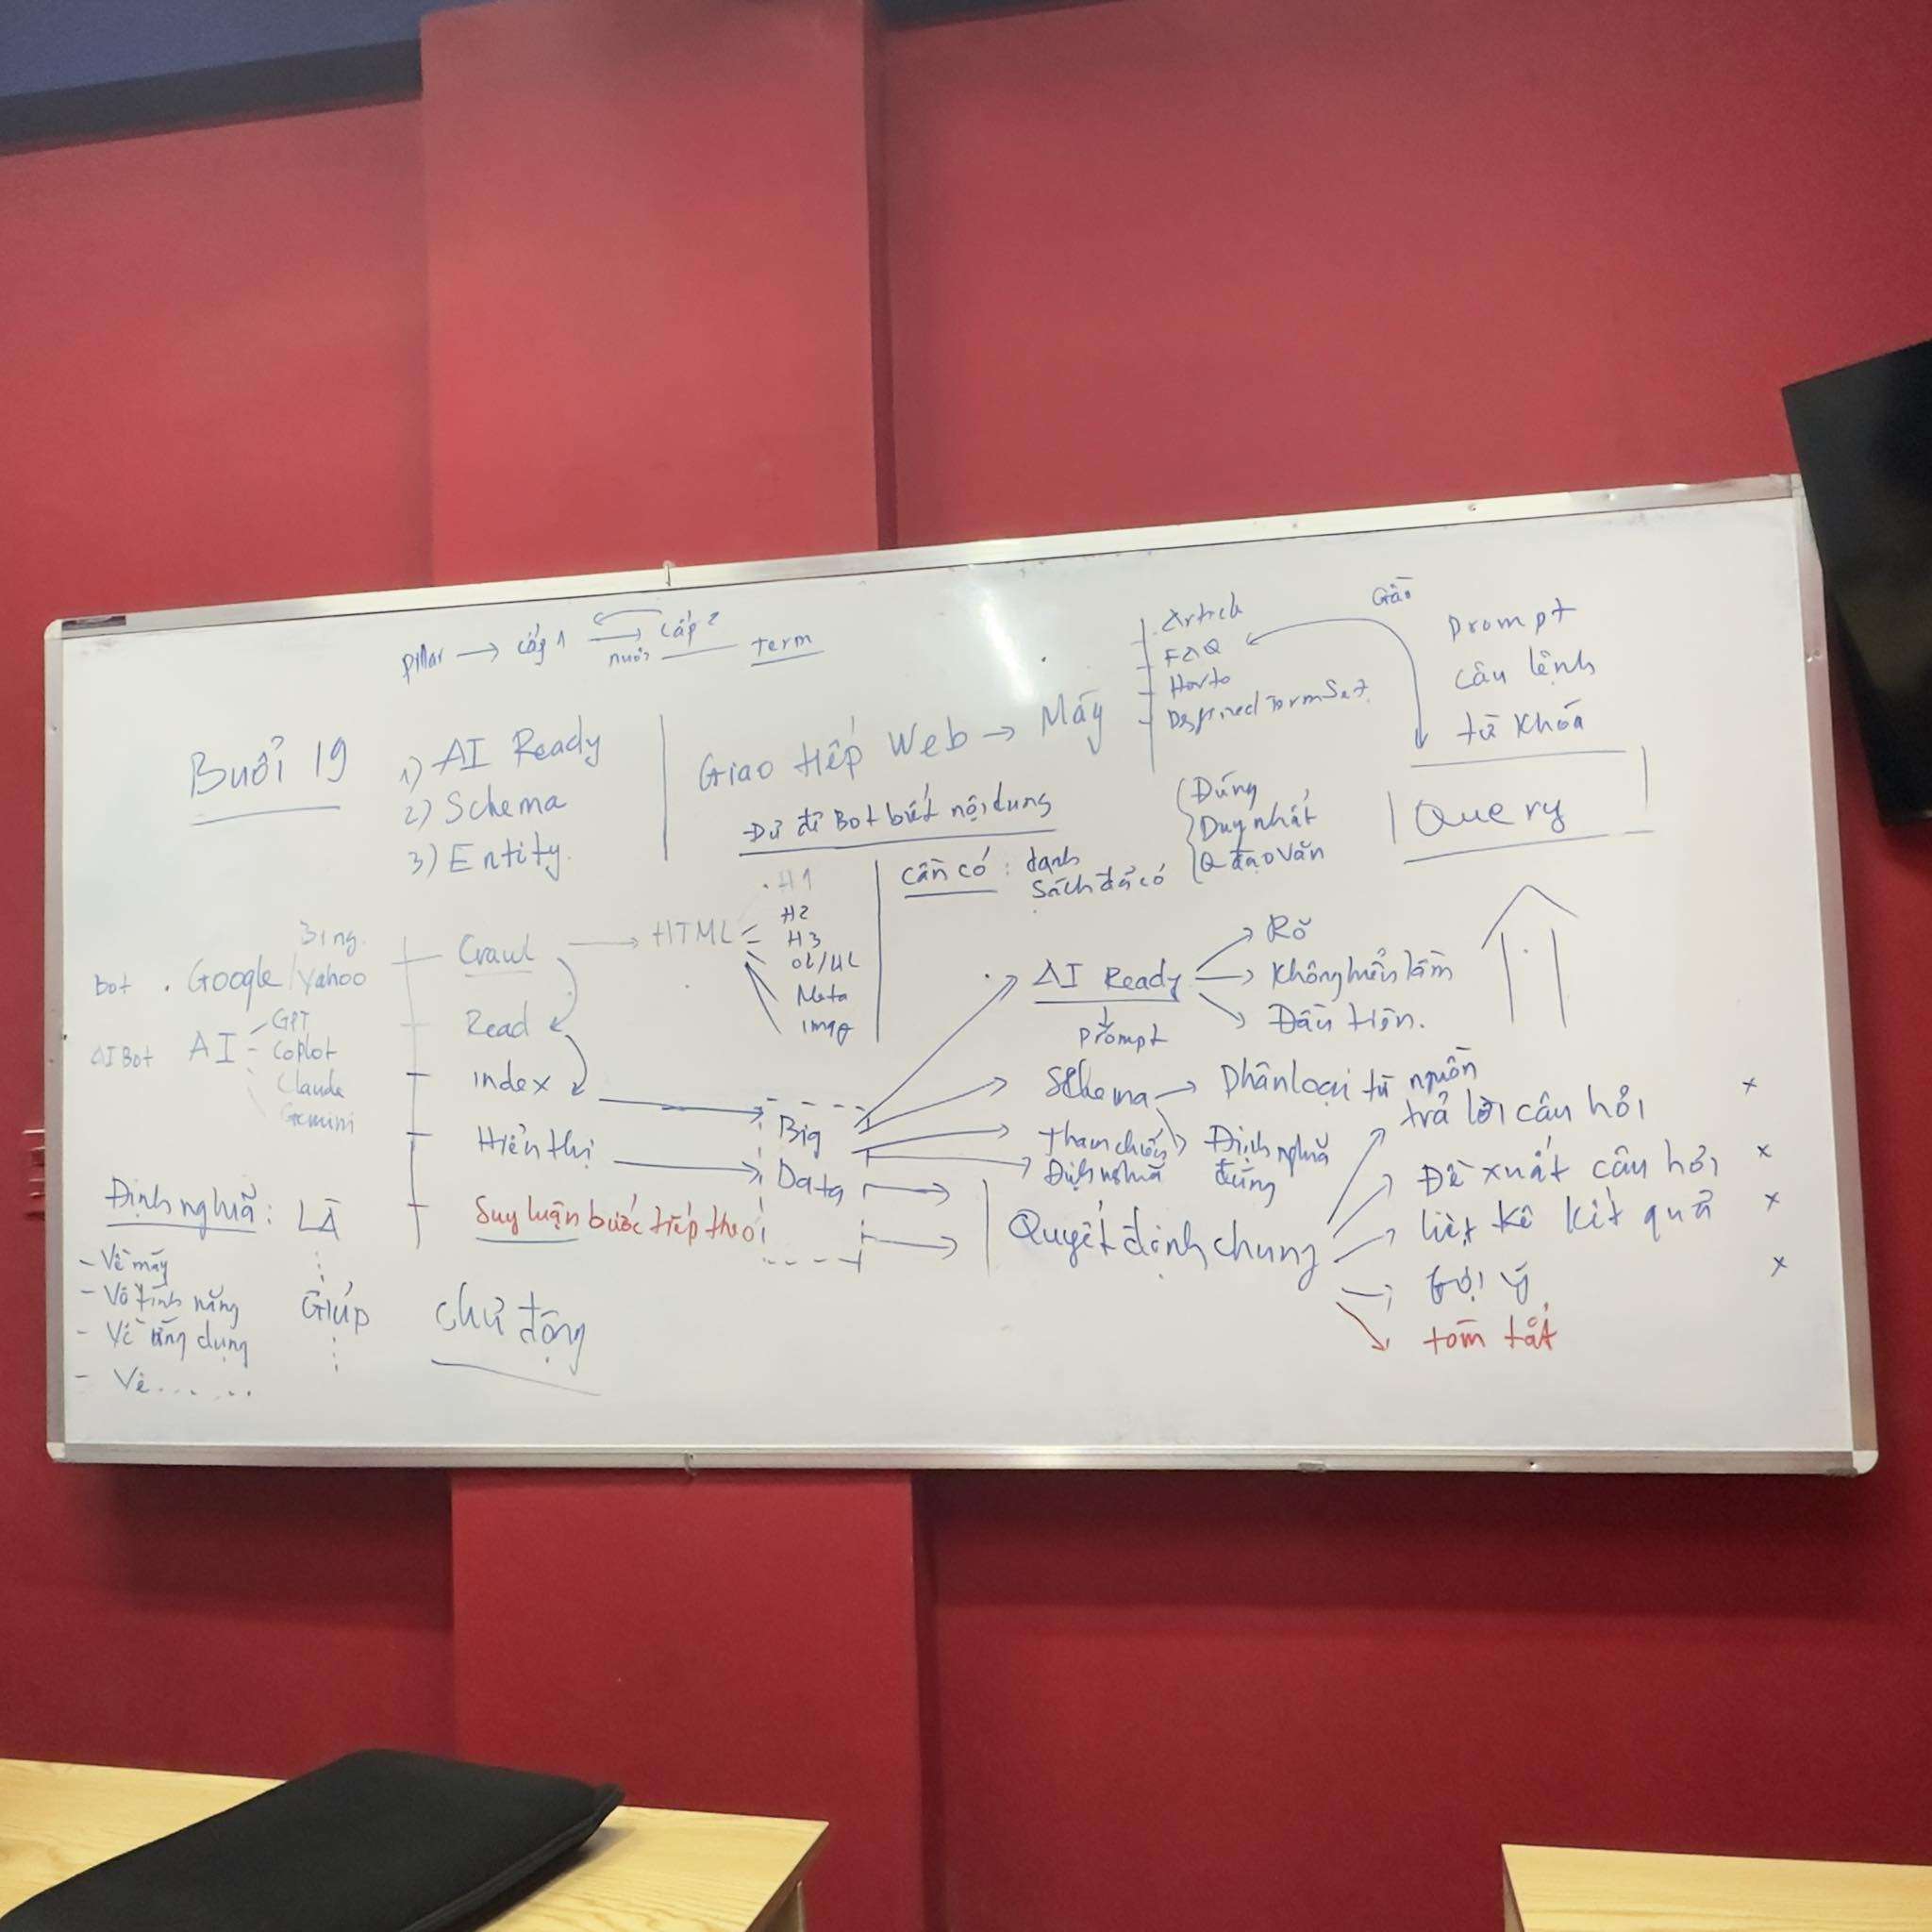 pillar → cấp 1 → cấp 2
nuôi
Term
Article
FAQ
Howto
Defined TermSet
Gần
Prompt
câu lệnh
từ khóa
Query
Buổi 19
1) AI Ready
2) Schema
3) Entity
Giao tiếp Web → Máy
Đủ để Bot biết nội dung
Cần có : danh
sách đã có
Đúng
Duy nhất
Q đạo văn
Bing
bot . Google / Yahoo
AI Bot AI
GPT
Coplot
Claude
Gemini
Crawl → HTML
H1
H2
H3
OL/UL
Meta
Read
index
Hiển thị
Suy luận bước tiếp theo
Big
Data
AI Ready
Prompt
Rõ
Không hiểu lầm
Đầu tiên.
Schema → Phân loại từ nguồn
Tham chiếu
Định nghĩa
Định nghĩa
đúng
Quyết định chung
trả lời câu hỏi x
Đề xuất câu hỏi x
liệt kê kết quả x
Gợi ý x
tóm tắt
Định nghĩa : LÀ
- Về máy
- Về tính năng
- Về ứng dụng
- Về .......
Giúp
chủ động